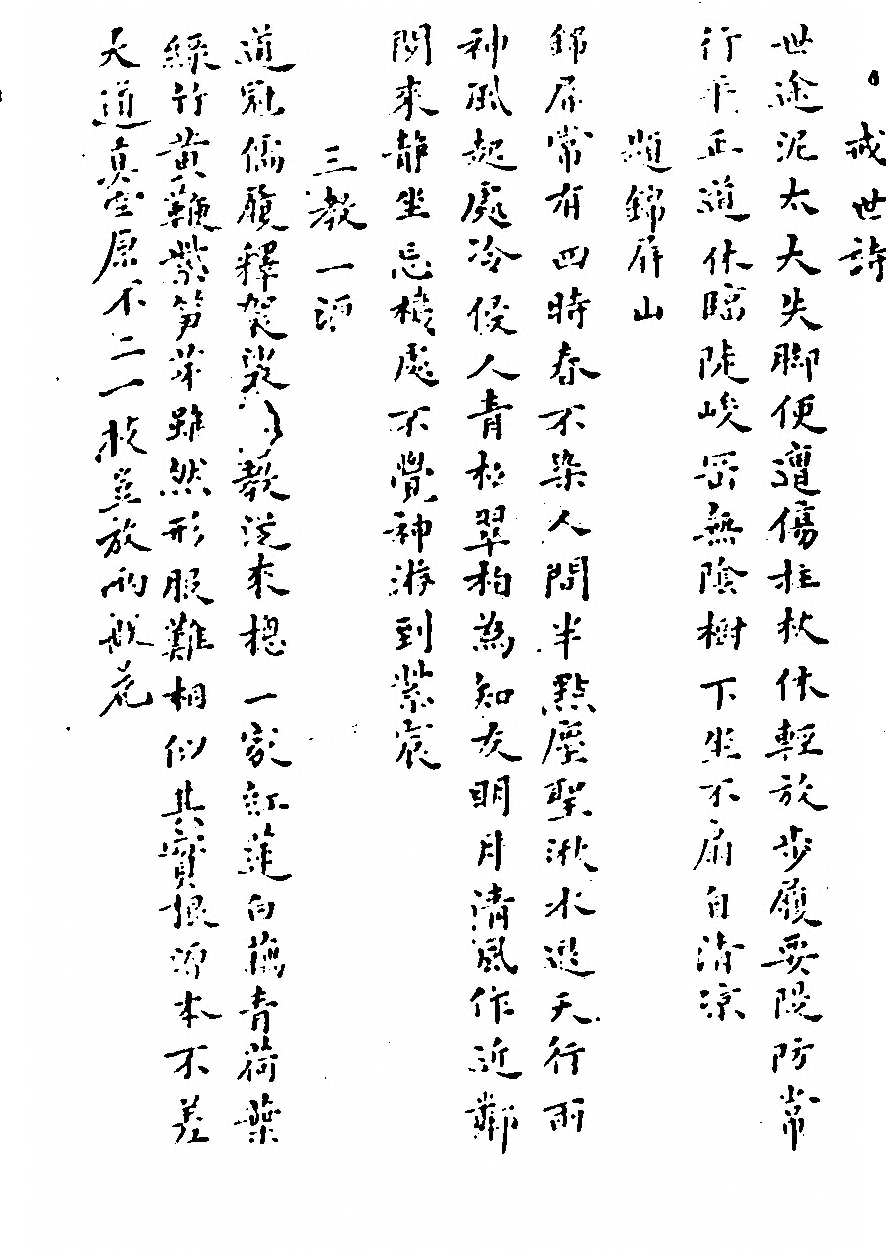 戒世詩
世途泥太大失脚便遭傷拄杖休輕放步履要隄防常
行平正道休臨陡峻岡無陰樹下坐不扇自清凉
題錦屏山
錦屏常有四時春不染人間半點塵聖湫水邊天行雨
神風起處冷侵人青松翠柏為知友明月清風作近鄰
閑來静坐忘機處不覺神游到紫宸
三教一源
道冠儒履釋袈裟教説來總一家紅蓮白藕青荷葉
綠竹黄鞭紫笋芽雖然形服難相似其實根源本不差
大道真空原不二一枝豈放兩般花